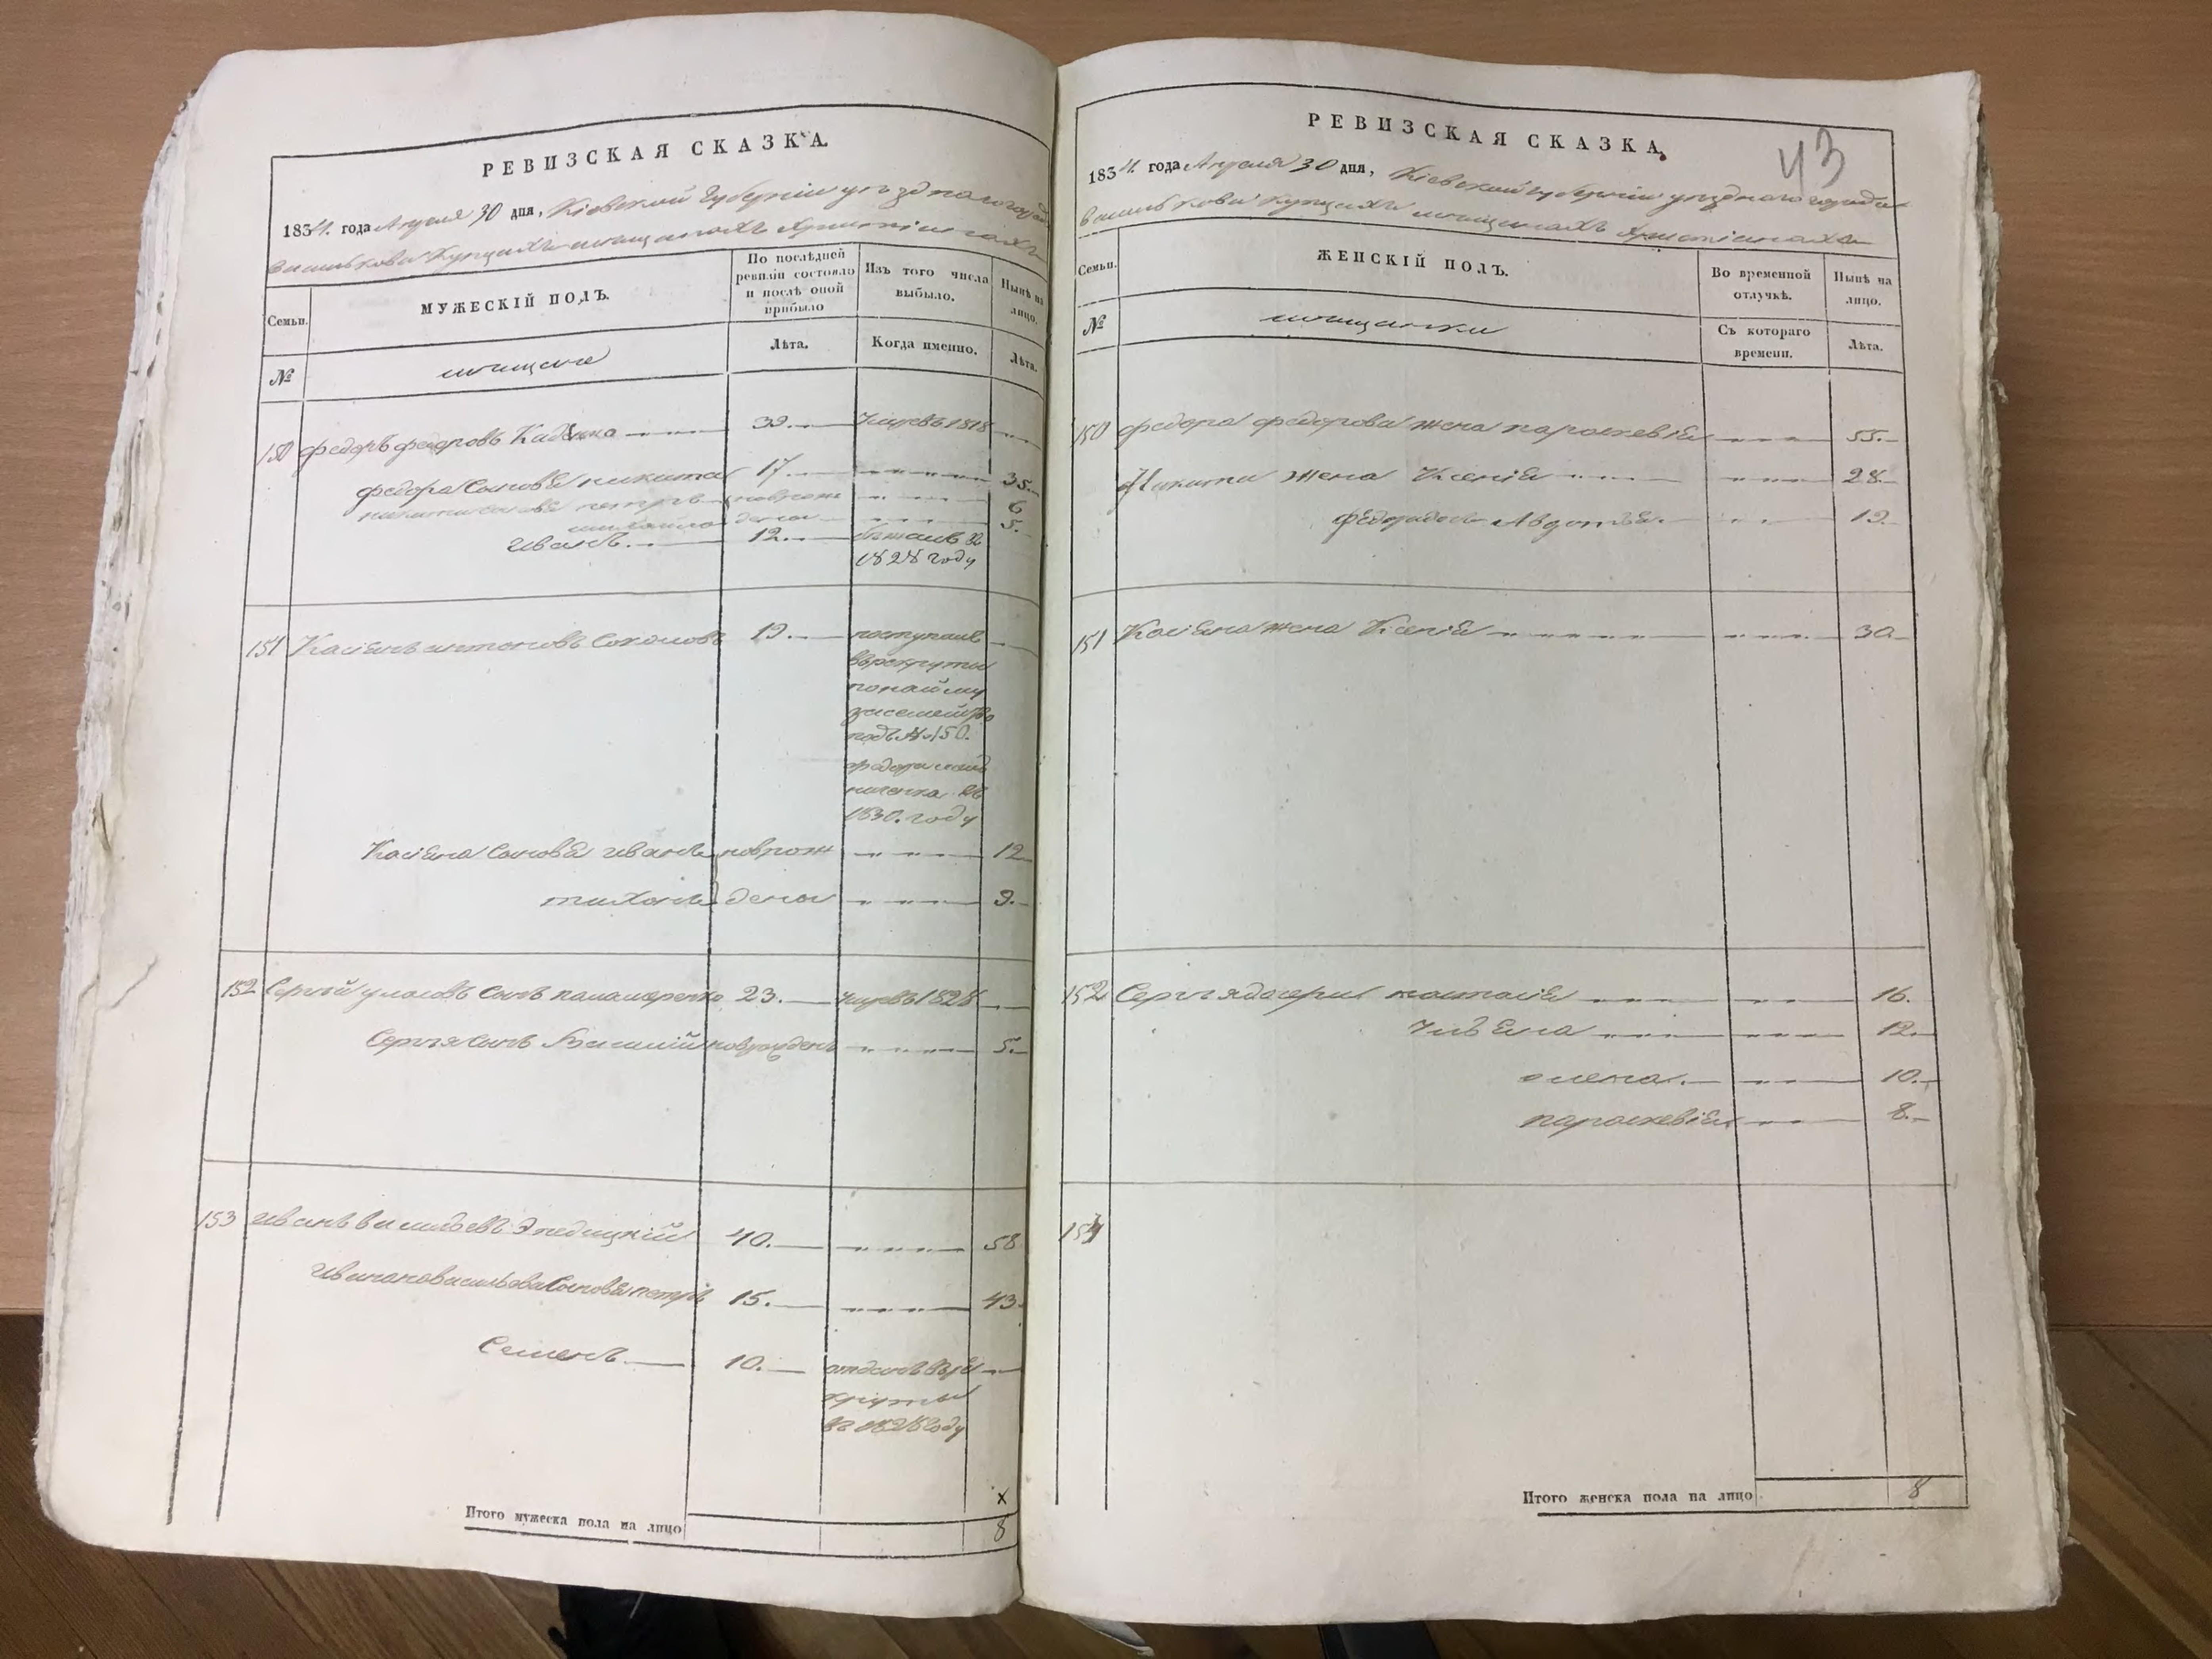 РЕВИЗСКАЯ СКАЗКА.
1834. года Апреля 30 дня, Кіевской Губерніи уездного города
Василькова Купцахъ мещанахъ Христіянахъ
Семьи.
МУЖЕСКІЙ ПОЛЪ.
По послѣдней ревизіи состояло и послѣ оной прибыло
Изъ того числа выбыло.
Нынѣ на лицо.
№
мещане
Лѣта.
Когда именно.
Лѣта.
150 федоръ федоровъ 39. умеръ 1818
федора сыновья никита 17. 35.
никиты сыновья петръ новрож 6
михайло дены 5.
иванъ. 12. бежалъ в
1828 году
151 Касіянъ антоновъ Соколовъ 19. поступилъ
врекруты
понайму
засемейство
подъ №150.
федора
1830. году
Касіяна сыновья иванъ новрож 12
тихонъ дены 9.
152 Сергей власовъ сынъ паламаренко 23. умеръ 1828
Сергея сынъ Василій новрожденъ 5.
153 иванъ васильевъ 40. 58
ивана васильева сыновья петръ 15. 43.
Семенъ 10. отданъ в ре
круты
въ 1828 году
Итого мужеска пола на лицо
х
8
РЕВИЗСКАЯ СКАЗКА.
43
1834. года Апреля 30 дня, Кіевской губерніи уездного города
Василькова Купцахъ мещанахъ Христіянахъ
Семьи.
ЖЕНСКІЙ ПОЛЪ.
Во временной отлучкѣ.
Нынѣ на лицо.
№
мещанки
Съ котораго времени.
Лѣта.
150 федора федорова жена параскевія 55.
Никиты жена Ксенія 28.
федора дочь Авдотья. 19.
151 Касіяна жена Ксенія 30.
152 Сергея дочери настасія 16.
ульяна 12.
олена. 10.
параскевія 8.
153
Итого женска пола на лицо 8